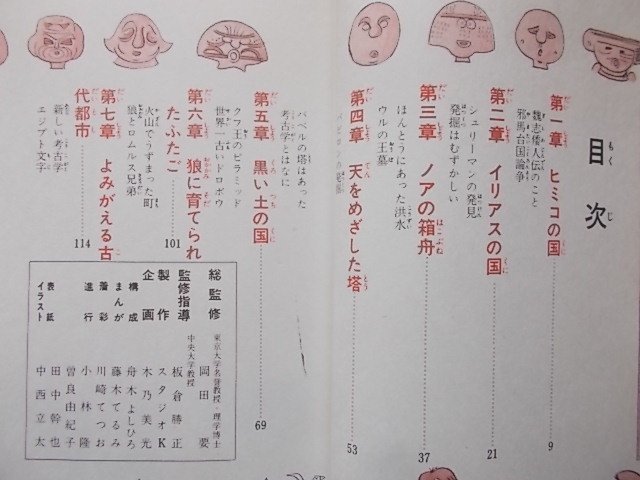 目次
第一章 ヒミコの国 9
魏志倭人伝のこと
邪馬台国論争
第二章 イリアスの国 21
シュリーマンの発見
発掘はむずかしい
第三章 ノアの箱舟 37
ほんとうにあった洪水
ウルの王墓
第四章 天をめざした塔 53
バベルの塔はあった
考古学とはなに
第五章 黒い土の国 69
クフ王のピラミッド
世界一古いドロボウ
第六章 狼に育てられ
たふたご 101
火山でうずまった町
狼とロムルス兄弟
第七章 よみがえる古
代都市 114
新しい考古学
エジプト文字
総監修 東京大学名誉教授・理学博士 岡田要
監修指導 中央大学教授 板倉勝正
製作 スタジオK
企画 木乃美光
構成 舟木よしひろ
まんが 藤木てるみ
着彩 川崎てつお
進行 小林隆
曽良由紀子
表紙 田中幹也
イラスト 中西立太